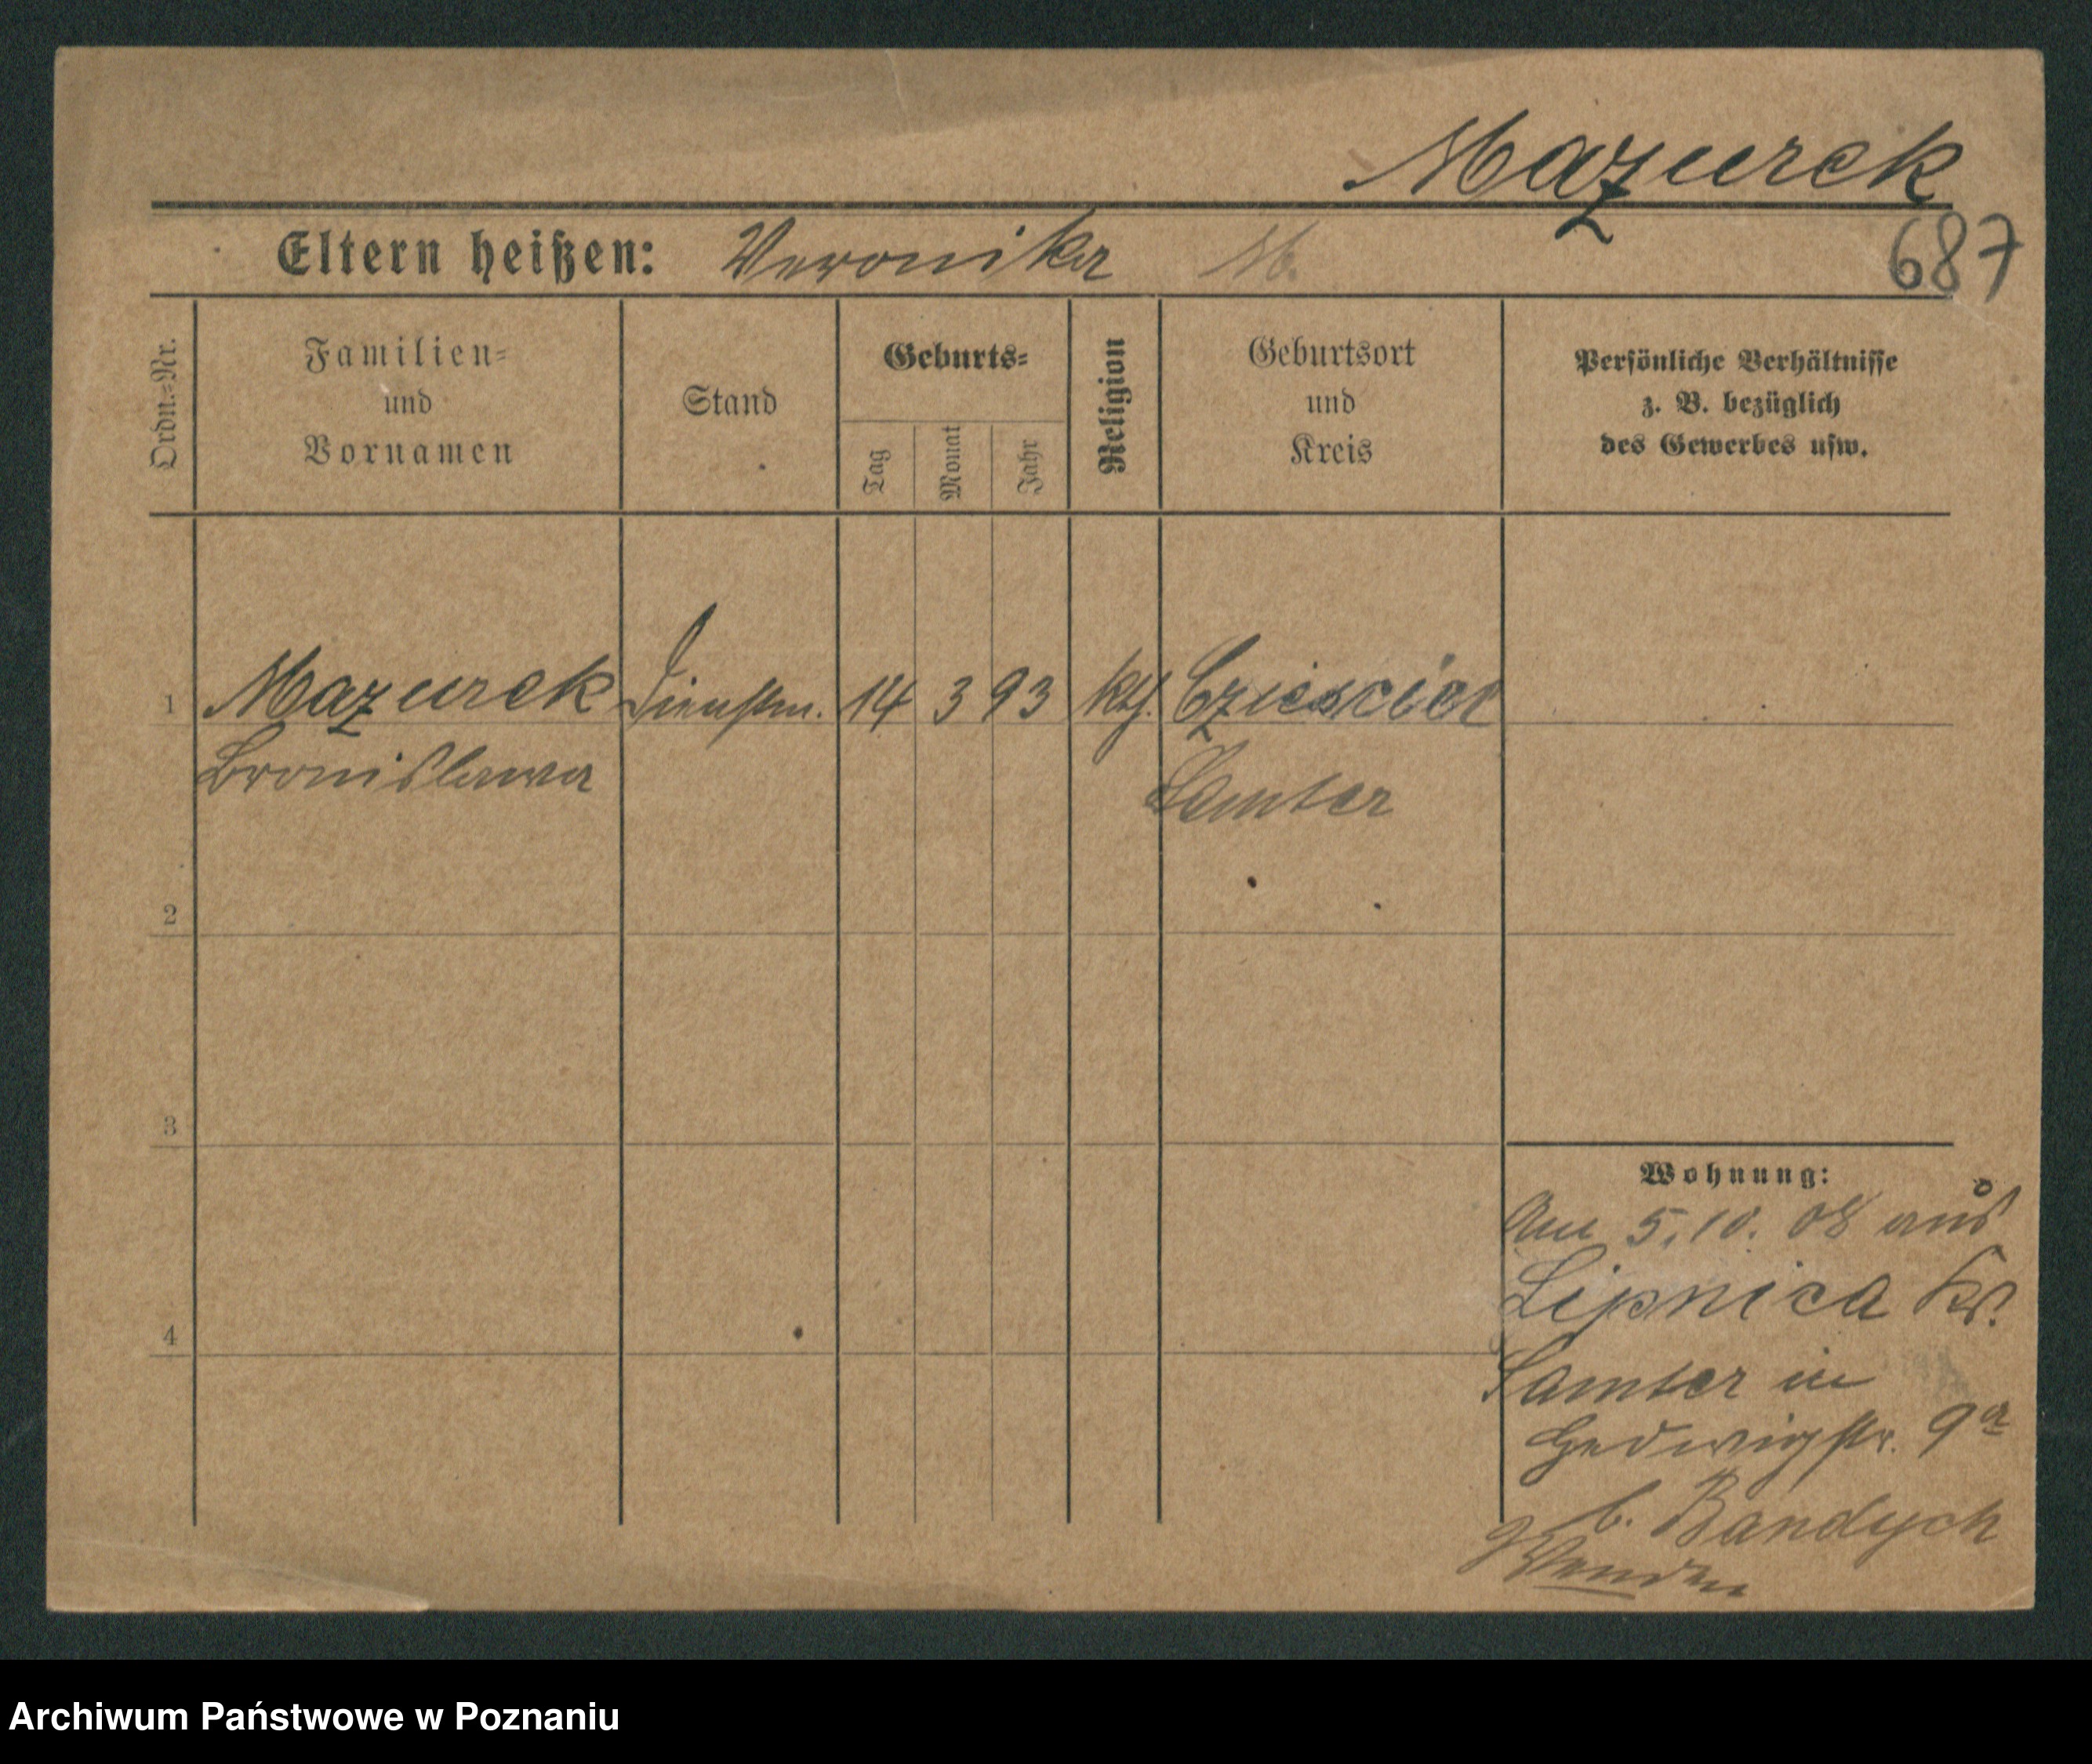 Mazurek
687
Eltern heißen: Veronika M.
Ordn.-Nr.
Familien-
und
Vornamen
Stand
Geburts-
Tag
Monat
Jahr
Religion
Geburtsort
und
Kreis
Persönliche Verhältnisse
z. B. bezüglich
des Gewerbes usw.
1 Mazurek Dienstm. 14 3 93 kth.
Bronislawa
Samter
2
3
4
Wohnung:
Am 5.10.08 aus
Lipnica Kr.
Samter in
Hedwigstr. 9a
b. Bandych
Wenden
Archiwum Państwowe w Poznaniu